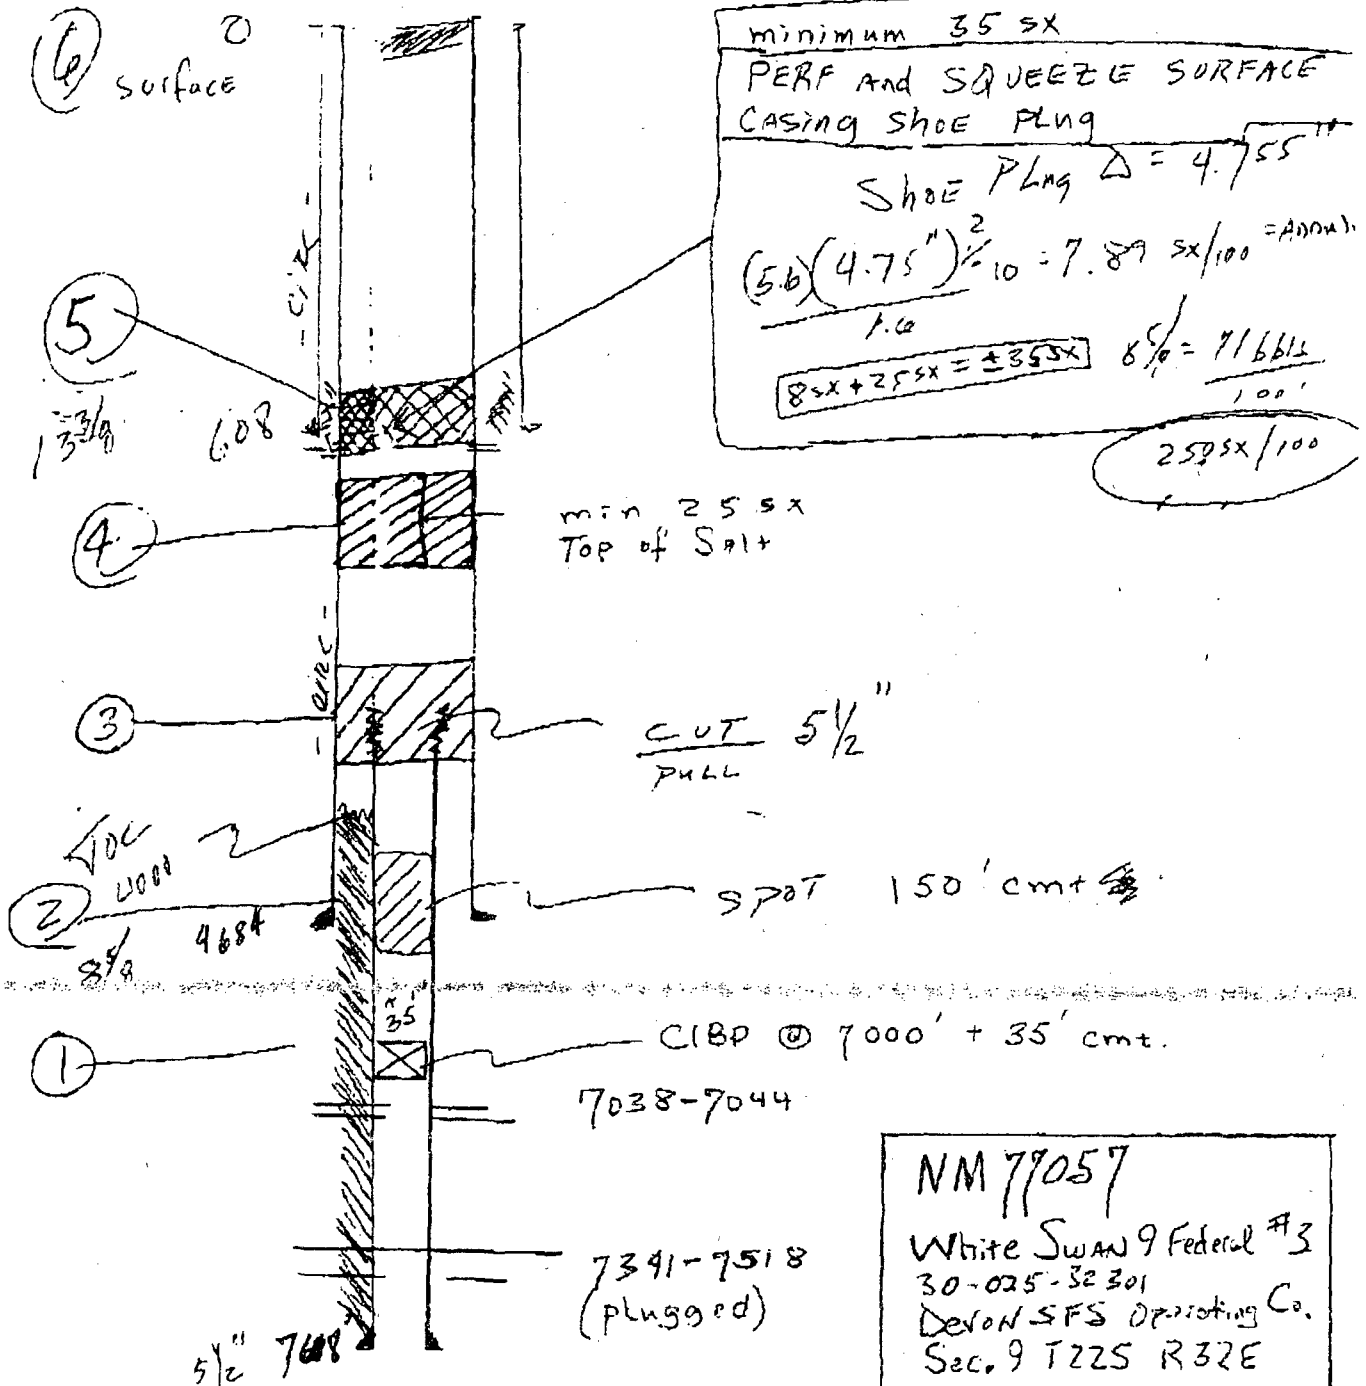 6
0
Surface
minimum 35 sx
PERF And SQUEEZE SURFACE
CASing ShoE PLug
ShoE PLug Δ = 4.755"
(5.6)(4.75")² ÷ 10 = 7.89 sx/100
1.6
8sx + 25sx = ±35sx
8 5/8 = 71 bbls
100'
25 sx/100
- Circ -
5
13 3/8
608
4
min 25 sx
Top of Salt
- circ -
3
CUT 5 1/2"
PULL
TOC
4000
2
8 5/8
4684
SPOT 150' cmt
35'
1
CIBP @ 7000' + 35' cmt.
7038-7044
7391-7518
(plugged)
5 1/2"
NM 77057
White SWAN 9 Federal #3
30-025-32301
Devon SFS Operating Co.
Sec. 9 T22S R32E